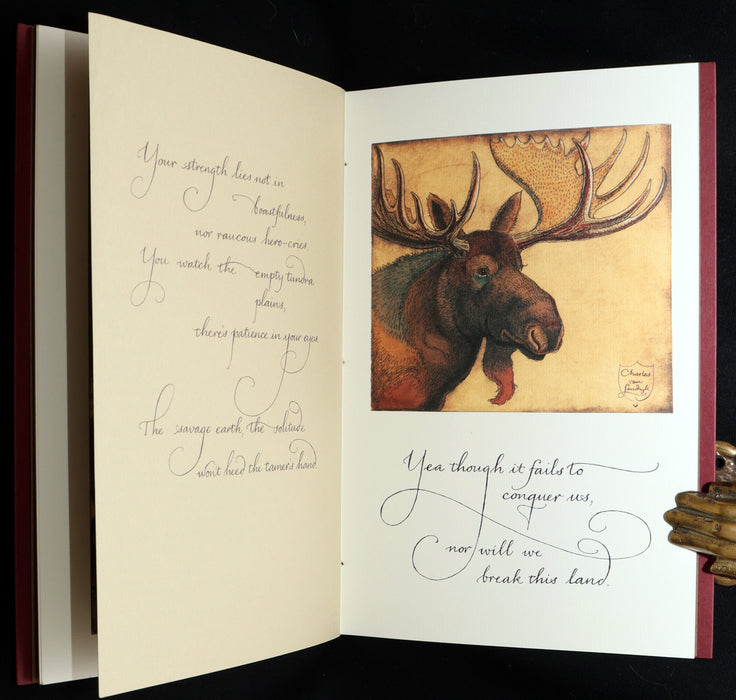 Your strength lies not in
boastfulness,
nor raucous hero-cries.
You watch the empty tundra
plains,
there's patience in your eyes.
The savage earth, the solitude
won't heed the tamer's hand.
Charles
van
Sandwyk
Yea though it fails to
conquer us,
nor will we
break this land.